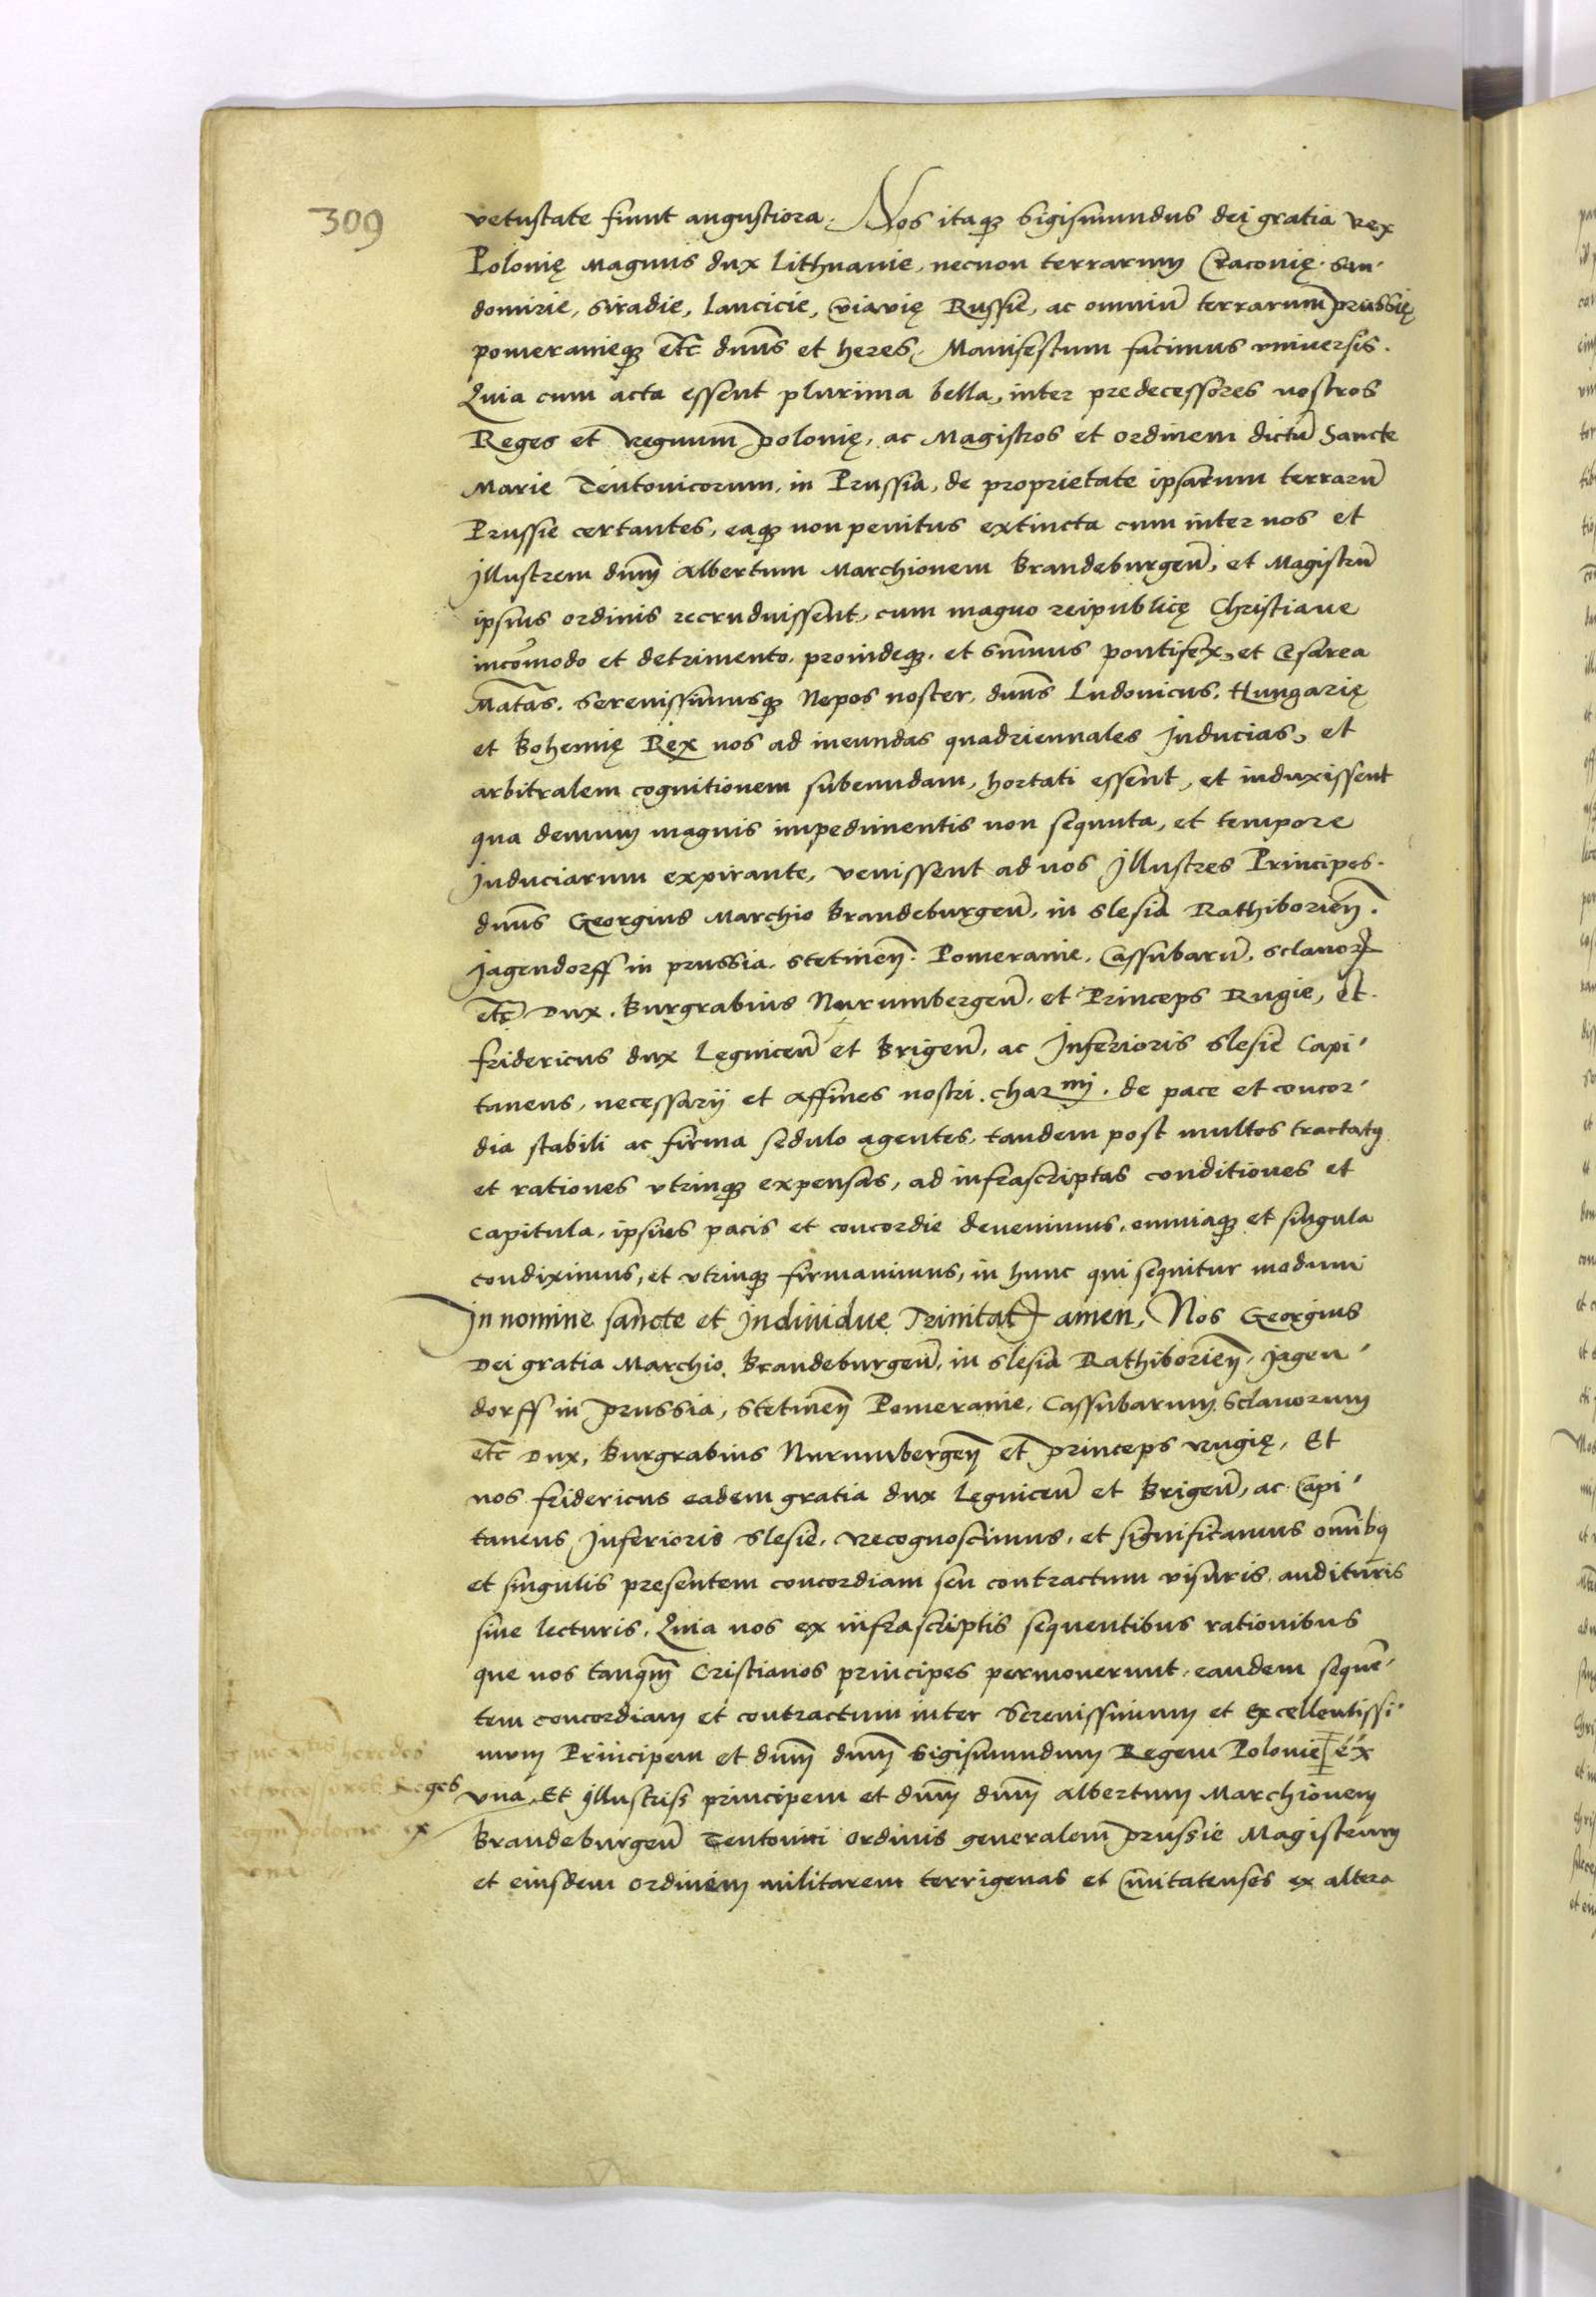 309
vetustate fiunt angustiora. Nos itaq3 Sigismundus dei gratia rex
Polonię Magnus dux Lithuanie, necnon terrarum Craconię. San-
domirie, Siradie, Lancicie, Cuiavię Russie, ac omniū terrarum prussię
pomeranieq3 etc dnūs et heres, Manifestum facimus vniuersis.
Quia cum acta essent plurima bella, inter predecessores nostros
Reges et regnum polonię, ac Magistros et ordinem dictū Sancte
Marie Teutonicorum, in Prussia, de proprietate ipsarum terrarū
Prussie certantes, eaq3 non penitus extincta cum inter nos et
Illustrem dnūm Albertum Marchionem Brandeburgeñ, et Magistrū
ipsius ordinis recruduissent, cum magno reipublicę Christiane
incōmodo et detrimento. proindeq3. et Sūmus pontifex, et Cesarea
Matas. Serenissimusq3 Nepos noster, dnūs Ludovicus. Hungarię
et Bohemię Rex nos ad ineundas quadriennales Inducias, et
arbitralem cognitionem subeundam, hortati essent, et induxissent
qua demum magnis impedimentis non sequuta, et tempore
Induciarum expirante, venissent ad nos Illustres Principes.
dnūs Georgius Marchio Brandeburgeñ, in Slesia Rathiborieñ.
Jagendorff in prussia. Stetineñ. Pomeranie. Cassubarū. Sclavor
etc Dux. Burgrabius Nurumbergeñ. et Princeps Rugie, et.
fridericus dux Legniceñ et Brigeñ, ac Inferioris Slesie Capi-
taneus, necessarij et Affines nostri. Char mi. de pace et concor-
dia stabili ac firma sedulo agentes, tandem post multos tractatus
et rationes vtrinq3 expensas, ad infrascriptas conditiones et
Capitula, ipsius pacis et concordie devenimus, omniaq3 et singula
condiximus, et vtrinq3 firmauimus, in hunc qui sequitur modum
In nomine sancte et Individue Trinitat amen, Nos Georgius
Dei gratia Marchio Brandeburgeñ, in Slesia Rathiborieñ, Jagen-
dorff in prussia, Stetineñ Pomeranie, Cassubarum, Sclavorum
etc Dux, Burgrabius Nurumbergeñ et princeps rugię, Et
nos fridericus eadem gratia dux Legniceñ et Brigeñ, ac Capi-
taneus Inferioris Slesie, recognoscimus, et significamus omībus
et singulis presentem concordiam seu contractum visuris, audituris
siue lecturis, Quia nos ex infrascriptis sequentibus rationibus
que nos tanqm Cristianos principes permouerunt, eandem sequē-
tem concordiam et contractum inter Serenissimum et Excellentissi-
mum Principem et dnūm dnūm Sigismundum Regem Polonie ex
vna, Et Illustriss principem et dnūm dnūm Albertum Marchionem
Brandeburgeñ Teutonici ordinis generalem prussie Magistrum
et eiusdem ordinem militarem terrigenas et Ciuitatenses ex altera
heredes
et successores Reges
Regni polonie ex
vna